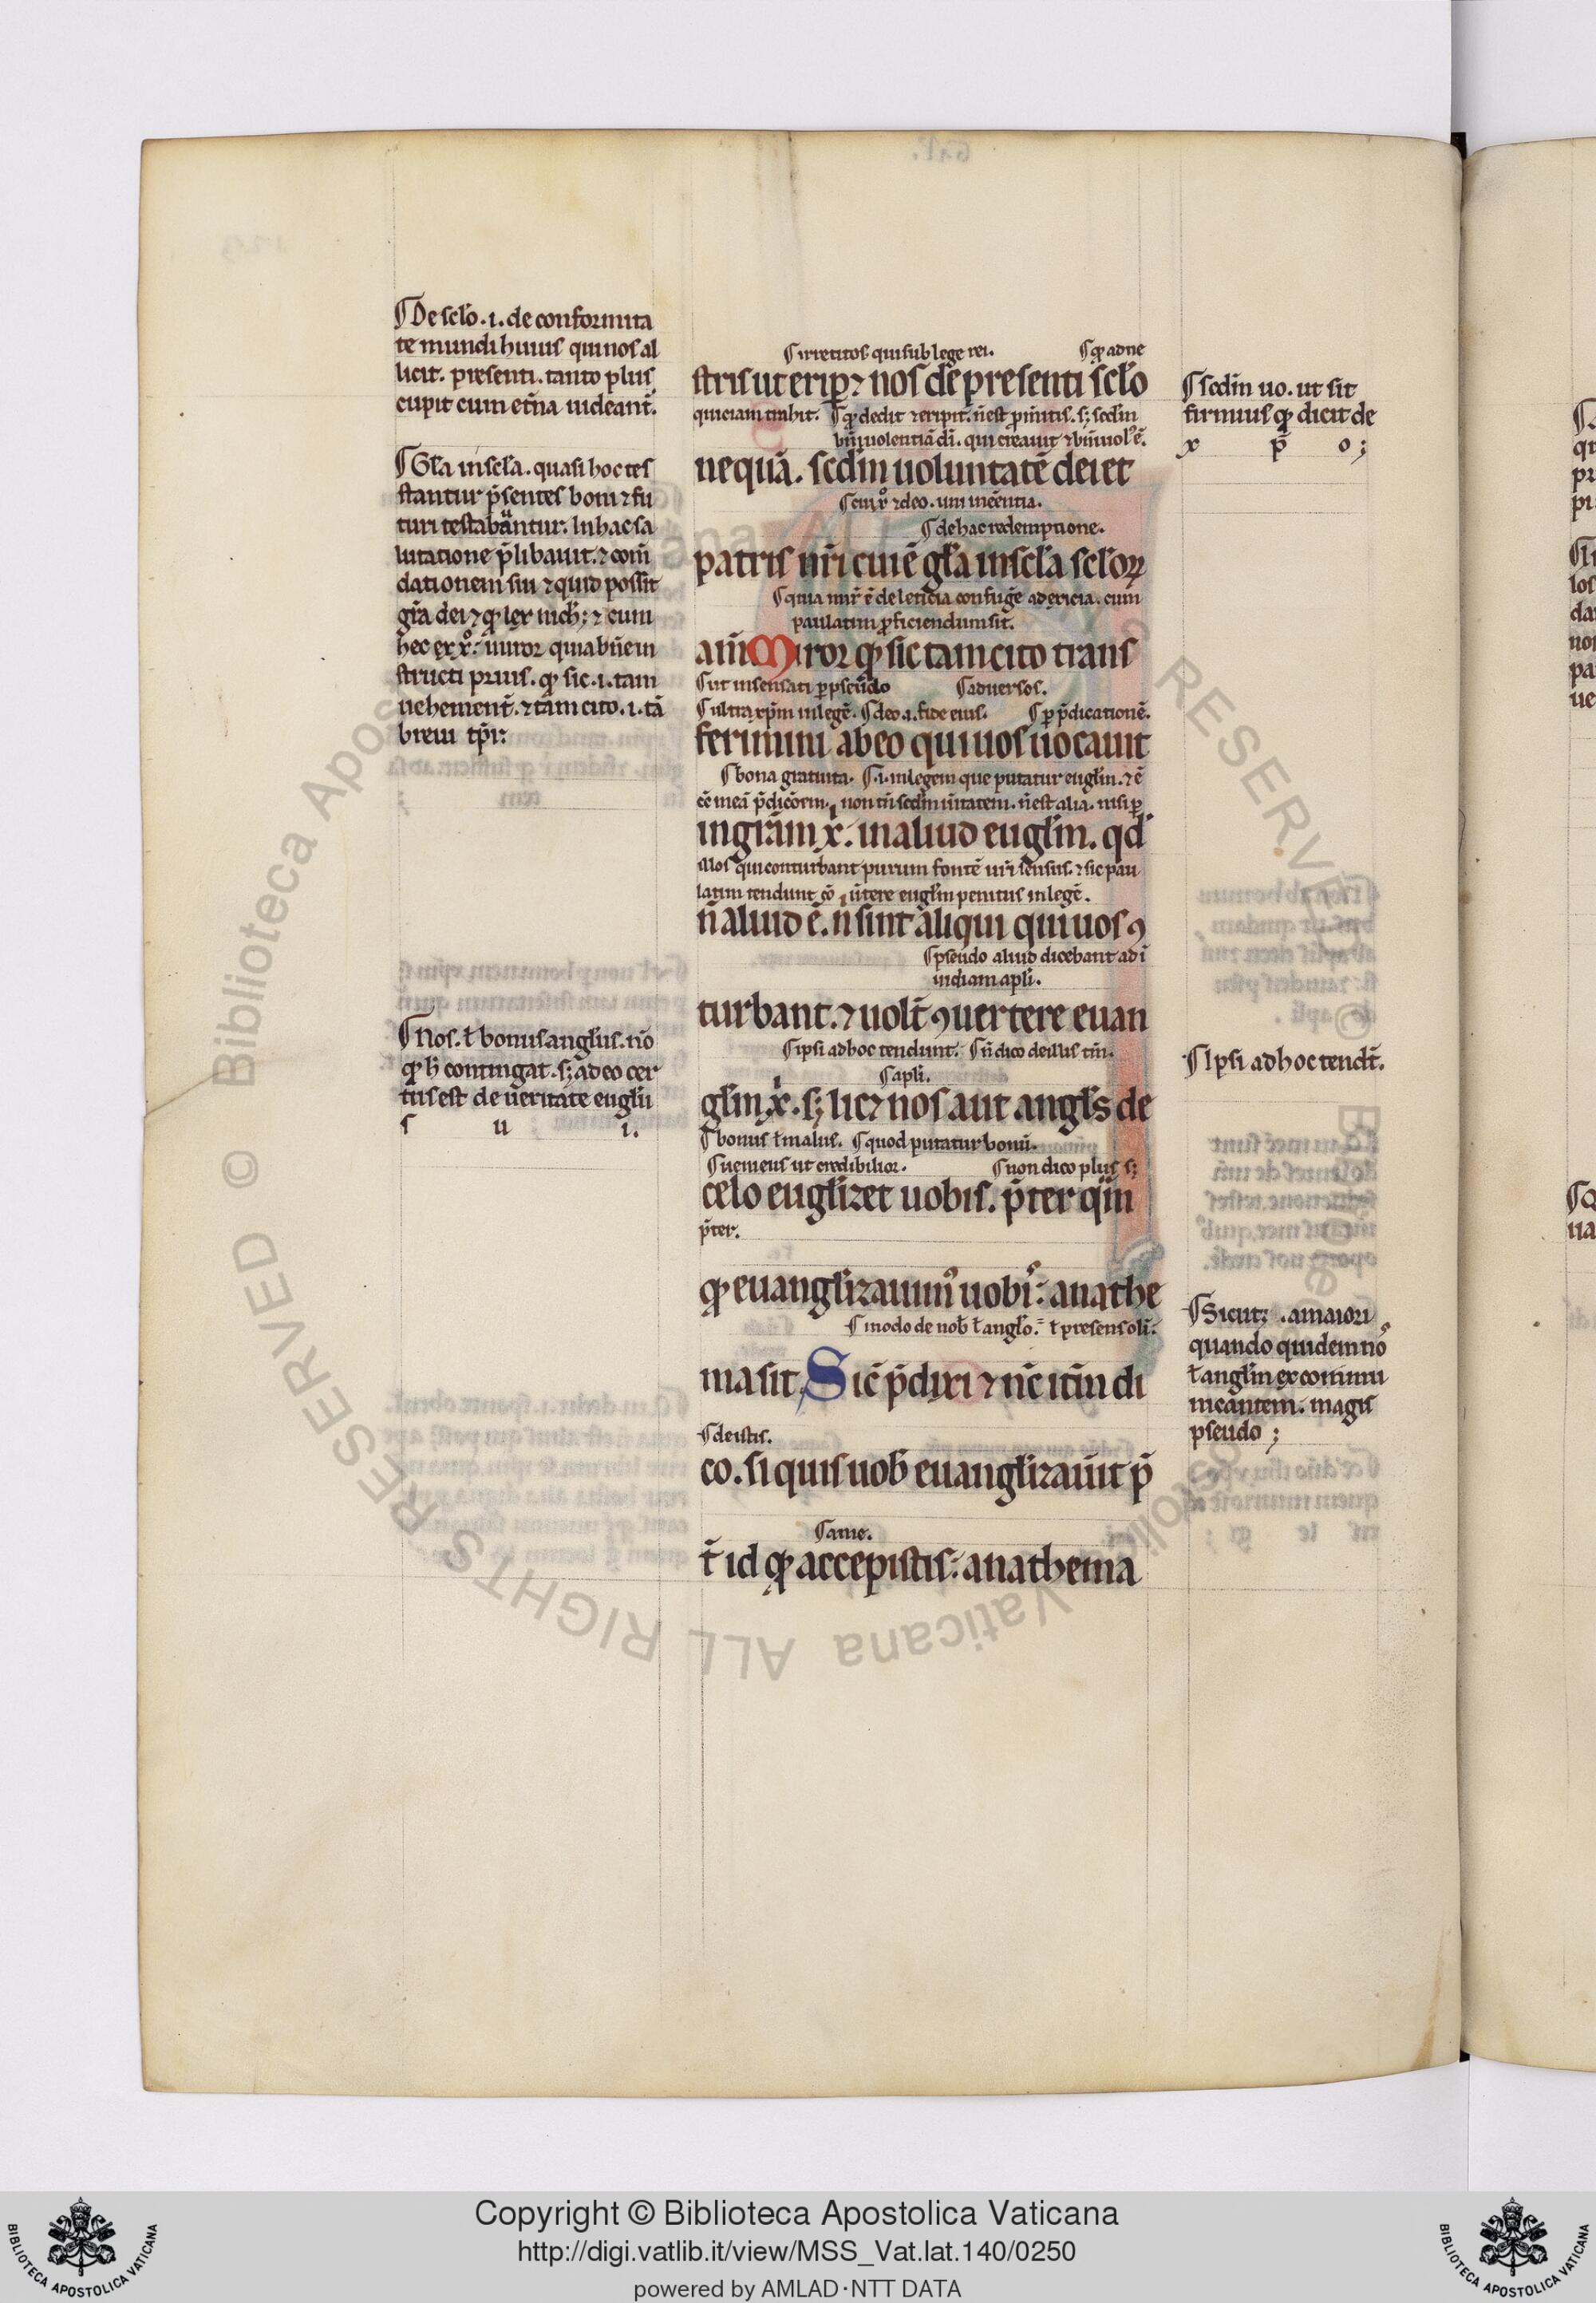 ¶De sclo .i. de conformita
te mundi huius qui nos al
licit. presenti. tanto plus
cupit cum et̄na uideant̄.
¶Gl̄a in scl̄a. quasi hoc tes
stantur p̄sentes boni ⁊ fu
turi testabantur: In hac sa
lutatione p̄libauit. ⁊ com̄
dationem sui ⁊ quid possit
gr̄a dei ⁊ qđ lex nich̄; ⁊ cum
hec ex x͛o. miror quia bn̄ ein
structi prius. qđ sic .i. tam
uehement̄. ⁊ tam cito .i. tā
breui tp̄r:
¶Nos. ł bonus anglus. nō
qđ h̄ contingat. s; adeo cer
tus est de ueritate euglīi
s u i.
¶irretitos qui sub lege rei. ¶qđ ad ne
stris ut eriꝑ⁊ nos de presenti sclo
quiciam trahit. ¶qđ dedit ⁊ eripit. n̄ est ꝓ meritis. s; scđm
beniuolentiā dī. qui creauit ⁊ beniuol' ē.
nequā. scđm uoluntatē dei et
¶cui x͛ ⁊ deo. uni inc̄entia.
¶de hac redemptione.
patris nr̄i cui ē gl̄a in scl̄a sclo℞
¶quia mir̄ ē de leticia confuḡe ad ericia. cum
paulatim ꝓficiendum sit.
am̄ Miror qđ sic tam cito trans
¶ut insensati ꝑ pseudo ¶aduersos.
¶ultra xp̄m in legē. ¶deo .a. fide eius. ¶ꝑ p̄dicationē.
ferimini ab eo qui uos uocauit
¶bona gratuita. ¶.i. in legem que putatur euglīm. ⁊ ē
cē meā p̄dicōem. non tn̄ scđm ūitatem. n̄ est alia. nisi ꝑ
in gr̄am x͛. in aliud euglīm. qđ
illos qui conturbant purum fontē ur̄i sensus. ⁊ sic pau
latim tendunt cō ūtere euglīm penitus in legē.
n̄ aliud ē. n̄ sint aliqui qui uos ꝯ
¶pseudo aliud dicebant ad ī
uidiam apl̄i.
turbant. ⁊ uolt̄ ꝯuertere euan
¶ipsi ad hoc tendunt. ¶n̄ dico de illis tm̄.
¶apl̄i.
glīm x͛i. s; lic⁊ nos aut angls de
¶bonus ł malus. ¶quod putatur bonū.
¶ueniens ut credibilior. ¶non dico plus s;
celo euglizet uobis. p̄ter qm̄
p̄ter.
qđ euanglizauim' uobis: anathe
¶modo de nob̄ ł anglo. ł presens olī.
ma sit. Sic̄ p̄dixi ⁊ nc̄ itm̄ di
¶de istis.
co. si quis uob̄ euanglizau̅it p̄
¶a me.
t̄ id qđ accepistis: anathema
¶scđm uo. ut sit
firmius qđ dicit de
x p̄ o;
¶Ipsi ad hoc tendt̄.
¶Sicut; a maiori
quando quidem nos
ł anglīm excommu
nicantem. magis
pseudo;
Copyright © Biblioteca Apostolica Vaticana
http://digi.vatlib.it/view/MSS_Vat.lat.140/0250
powered by AMLAD·NTT DATA
BIBLIOTECA APOSTOLICA VATICANA
BIBLIOTECA APOSTOLICA VATICANA
© Biblioteca Apostolica Vaticana ALL RIGHTS RESERVED